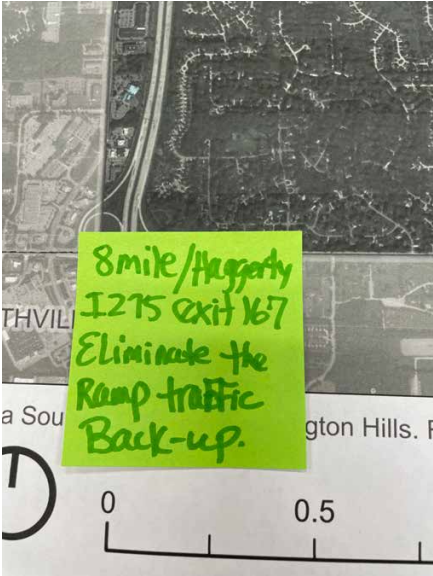 8mile/Haggerty
I275 exit 167
Eliminate the
Ramp traffic
Back-up.
THVIL
a Sou
gton Hills.
0
0.5